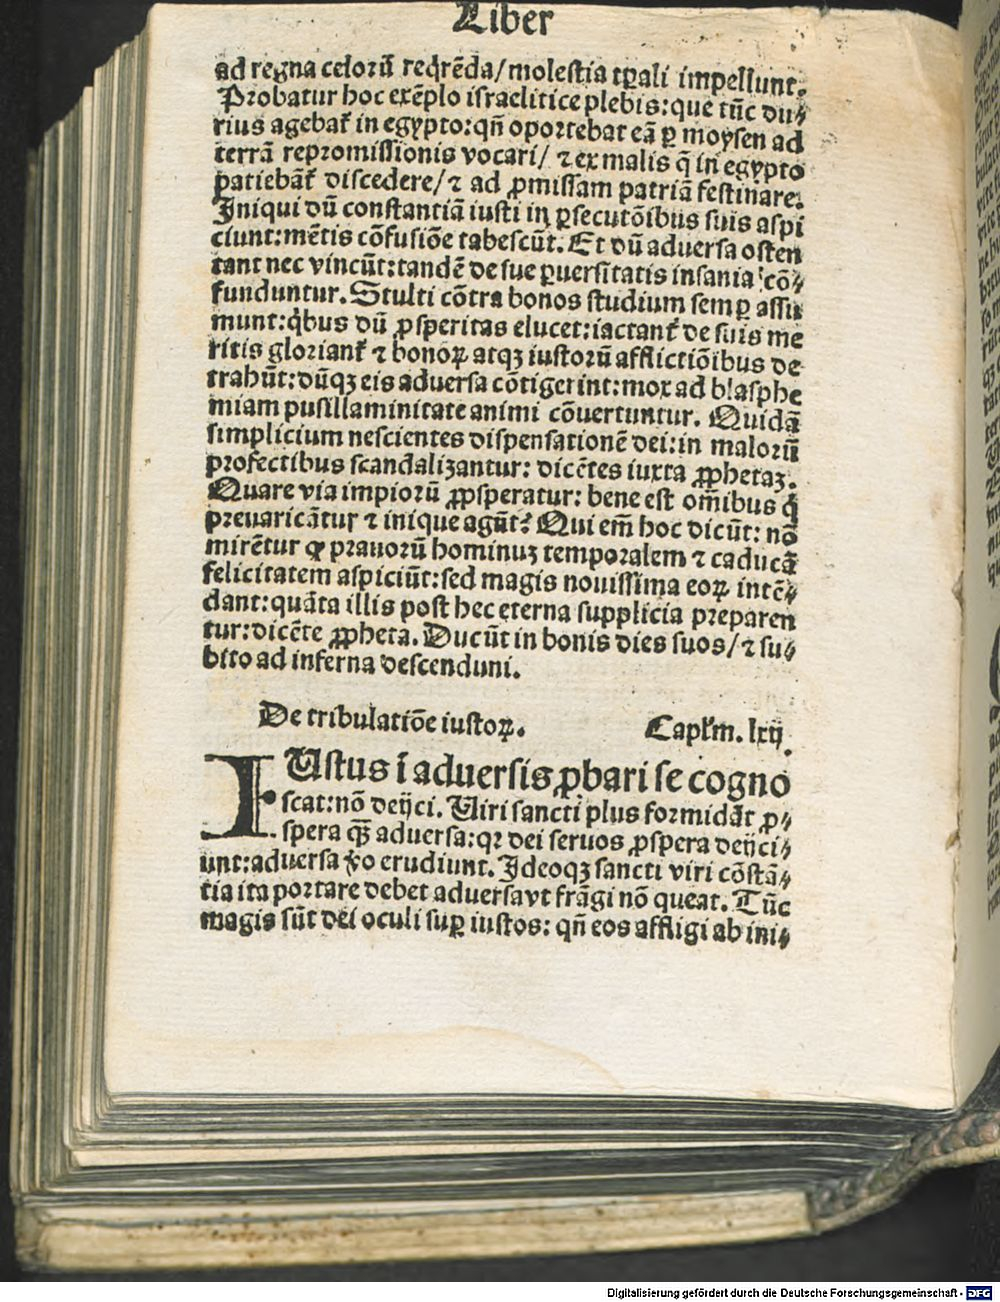 Liber
ad regna celoꝝ̃ reqͥrēda/molestia tꝑali impellunt.
Probatur hoc exēplo israelitice plebis:que tūc du⸗
rius agebat᷑ in egypto:qñ oportebat eā ꝑ moysen ad
terrā repromissionis vocari/ ⁊ ex malis q̄ in egypto
patiebāt᷑ discedere/⁊ ad ꝓmissam patriā festinare.
Iniqui dū constantiā iusti in ꝑsecutōibus suis aspi
ciunt:mētis cōfusiōe tabescūt. Et dū aduersa osten
tant nec vincūt:tandē de sue ꝑuersitatis insania cō⸗
funduntur. Stulti cōtra bonos studium semꝑ assu
munt:qͥbus dū ꝓsperitas elucet:iactant᷑ de suis me
ritis gloriant᷑ ⁊ bonoꝝ atqꝫ iustorū afflictiōibus de
trahūt:dūqꝫ eis aduersa cōtigerint:mox ad blasphe
miam pusillaminitate animi cōuertuntur. Quidā
simplicium nescientes dispensationē dei:in malorū
profectibus scandalizantur: dicētes iuxta ꝓphetaꝫ.
Quare via impiorū ꝓsperatur: bene est om̄ibus qͥ
preuaricātur ⁊ inique agūt? Qui em̄ hoc dicūt: nō
mirētur ꝙ prauorū hominuꝫ temporalem ⁊ caducā
felicitatem aspiciūt:sed magis nouissima eoꝝ intē⸗
dant:quāta illis post hec eterna supplicia preparen
tur:dicēte ꝓpheta. Ducūt in bonis dies suos/⁊ su⸗
bito ad inferna descenduni.
De tribulatiōe iustoꝝ. Capl'm. lxij.
IUstus ī aduersis ꝓbari se cogno
scat:nō deijci. Uiri sancti plus formidāt ꝓ⸗
spera qꝫ̃ aduersa:qꝛ dei seruos ꝓspera deijci⸗
unt:aduersa ꝟo erudiunt. Ideoqꝫ sancti viri cōstā⸗
tia ita portare debet aduersavt frāgi nō queat. Tūc
magis sūt dei oculi suꝑ iustos: qñ eos affligi ab ini⸗
Digitalisierung gefördert durch die Deutsche Forschungsgemeinschaft - DFG